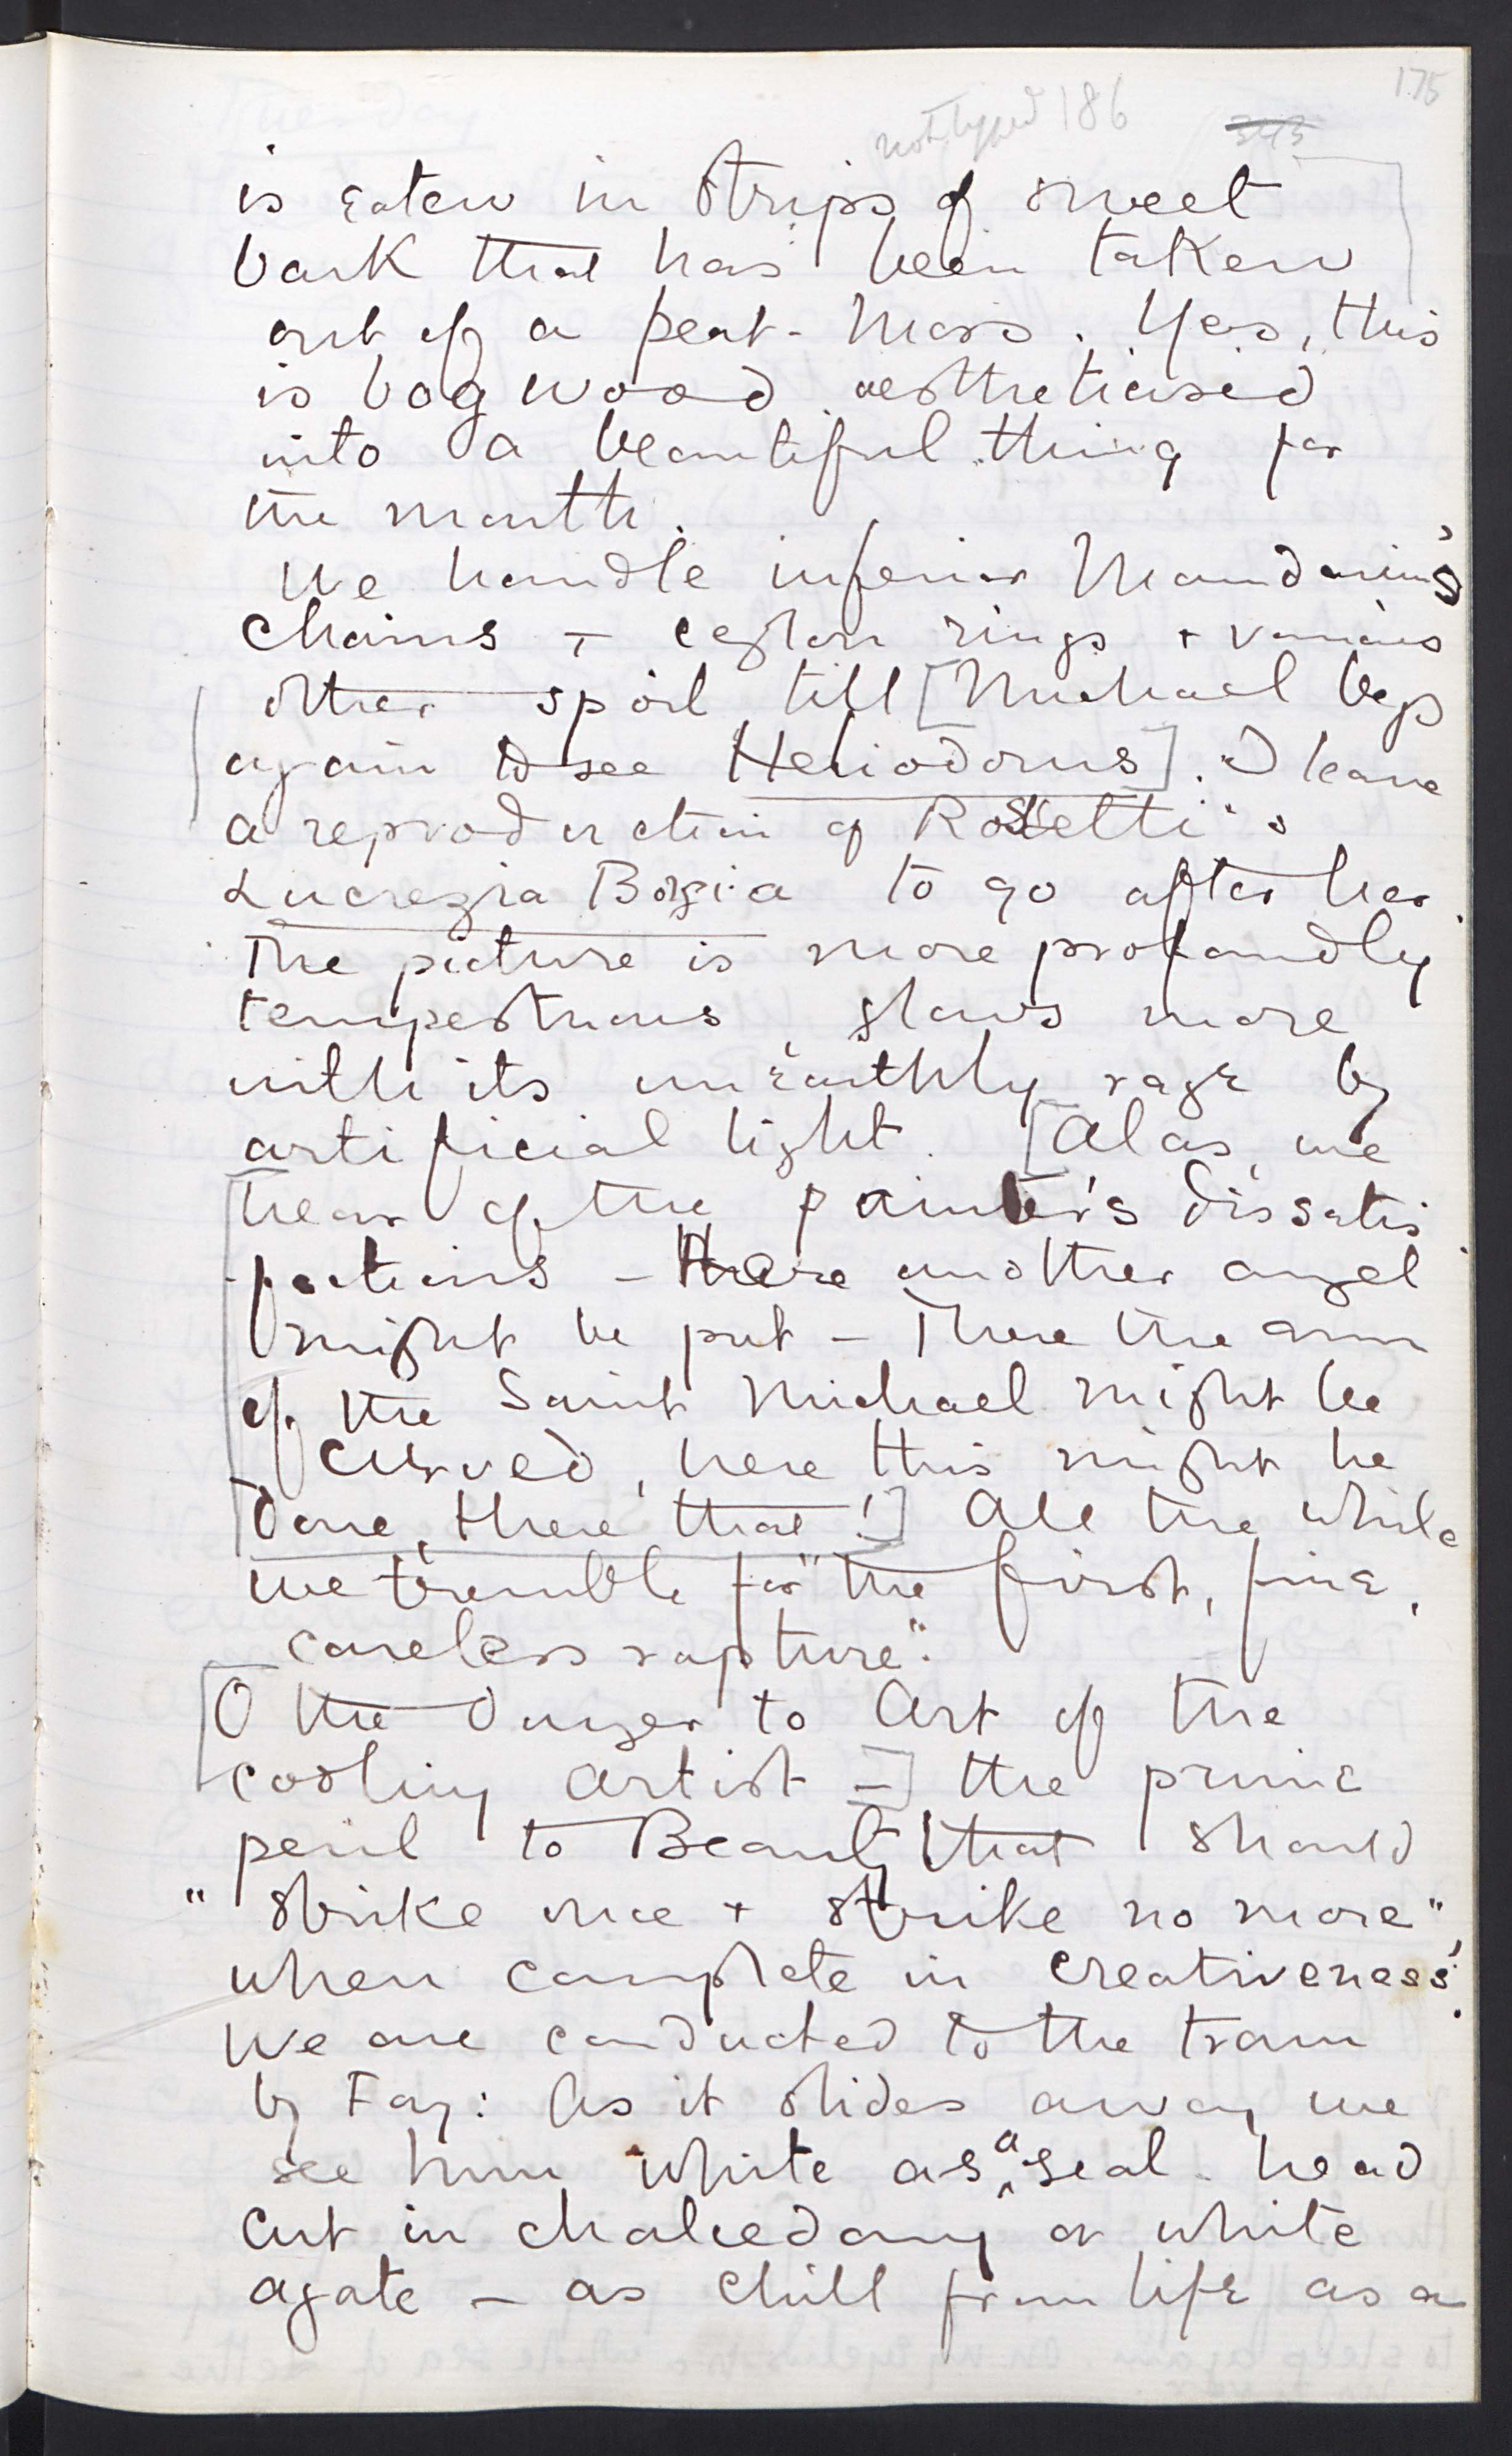 175
not typed 186
343
is eaten in strips of sweet
bark that has been taken
out of a peat-moss. Yes, this
is bog wood aestheticised
into a beautiful thing for
the mouth.
We handle inferior Mandarin's
chains + Ceylon rings + various
other spoil till [Michael begs
again to see Heliodorus]. I leave
a reproduction of Rossetti's
Lucrezia Borgia to go after her.
The picture is more profoundly
tempestuous, glows more
with its unearthly rage by
artificial light. [Alas, we
hear of the painter's dissatis-
factions - Here another angel
might be put - There the arm
of the Saint Michael might be
curved, here this might be
done, there that!] All the while
we tremble for "the first, fine,
careless rapture".
[O the danger to Art of the
cooling artist -] the prime
peril to Beauty that should
"strike once + strike no more",
when complete in creativeness.
We are conducted to the tram
by Fay: As it slides away we
see him white as a seal-head
cut in chalcedony or white
agate - as chill from life as a